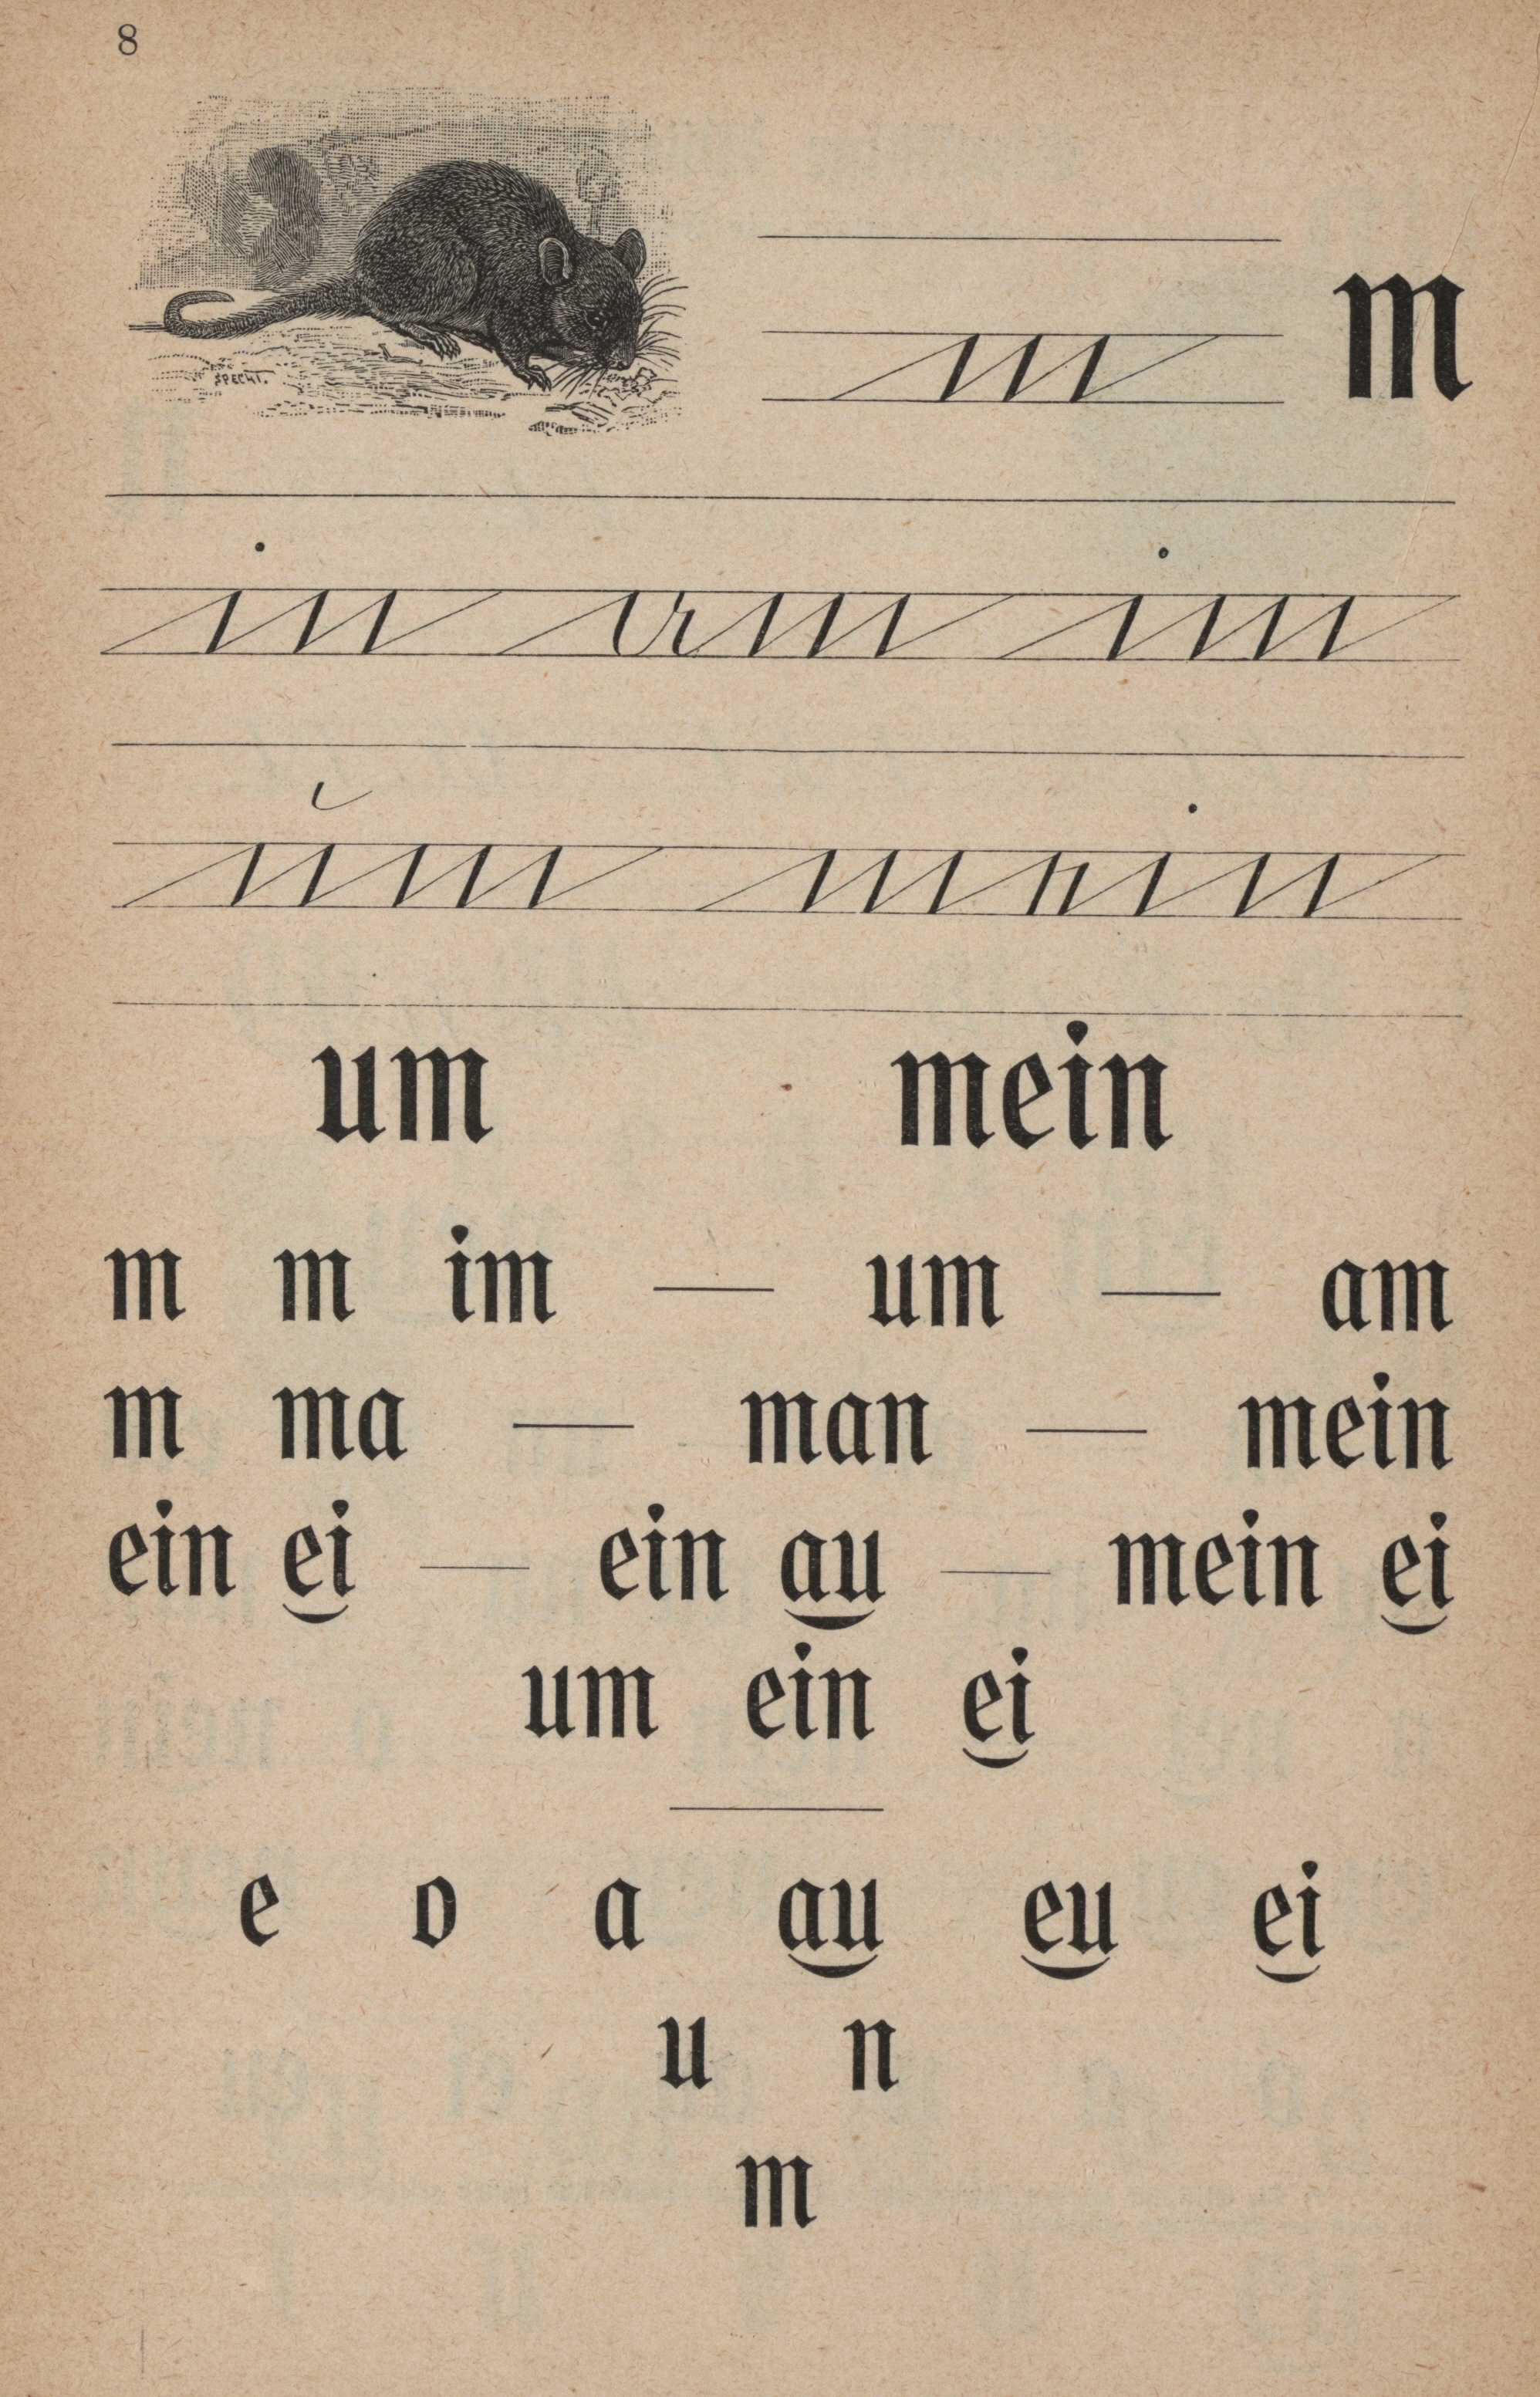 8
SPECHT.
m m
in am im
um mein
um mein
m m im — um — am
m ma — man — mein
ein ei — ein au — mein ei
um ein ei
e o a au eu ei
u n
m